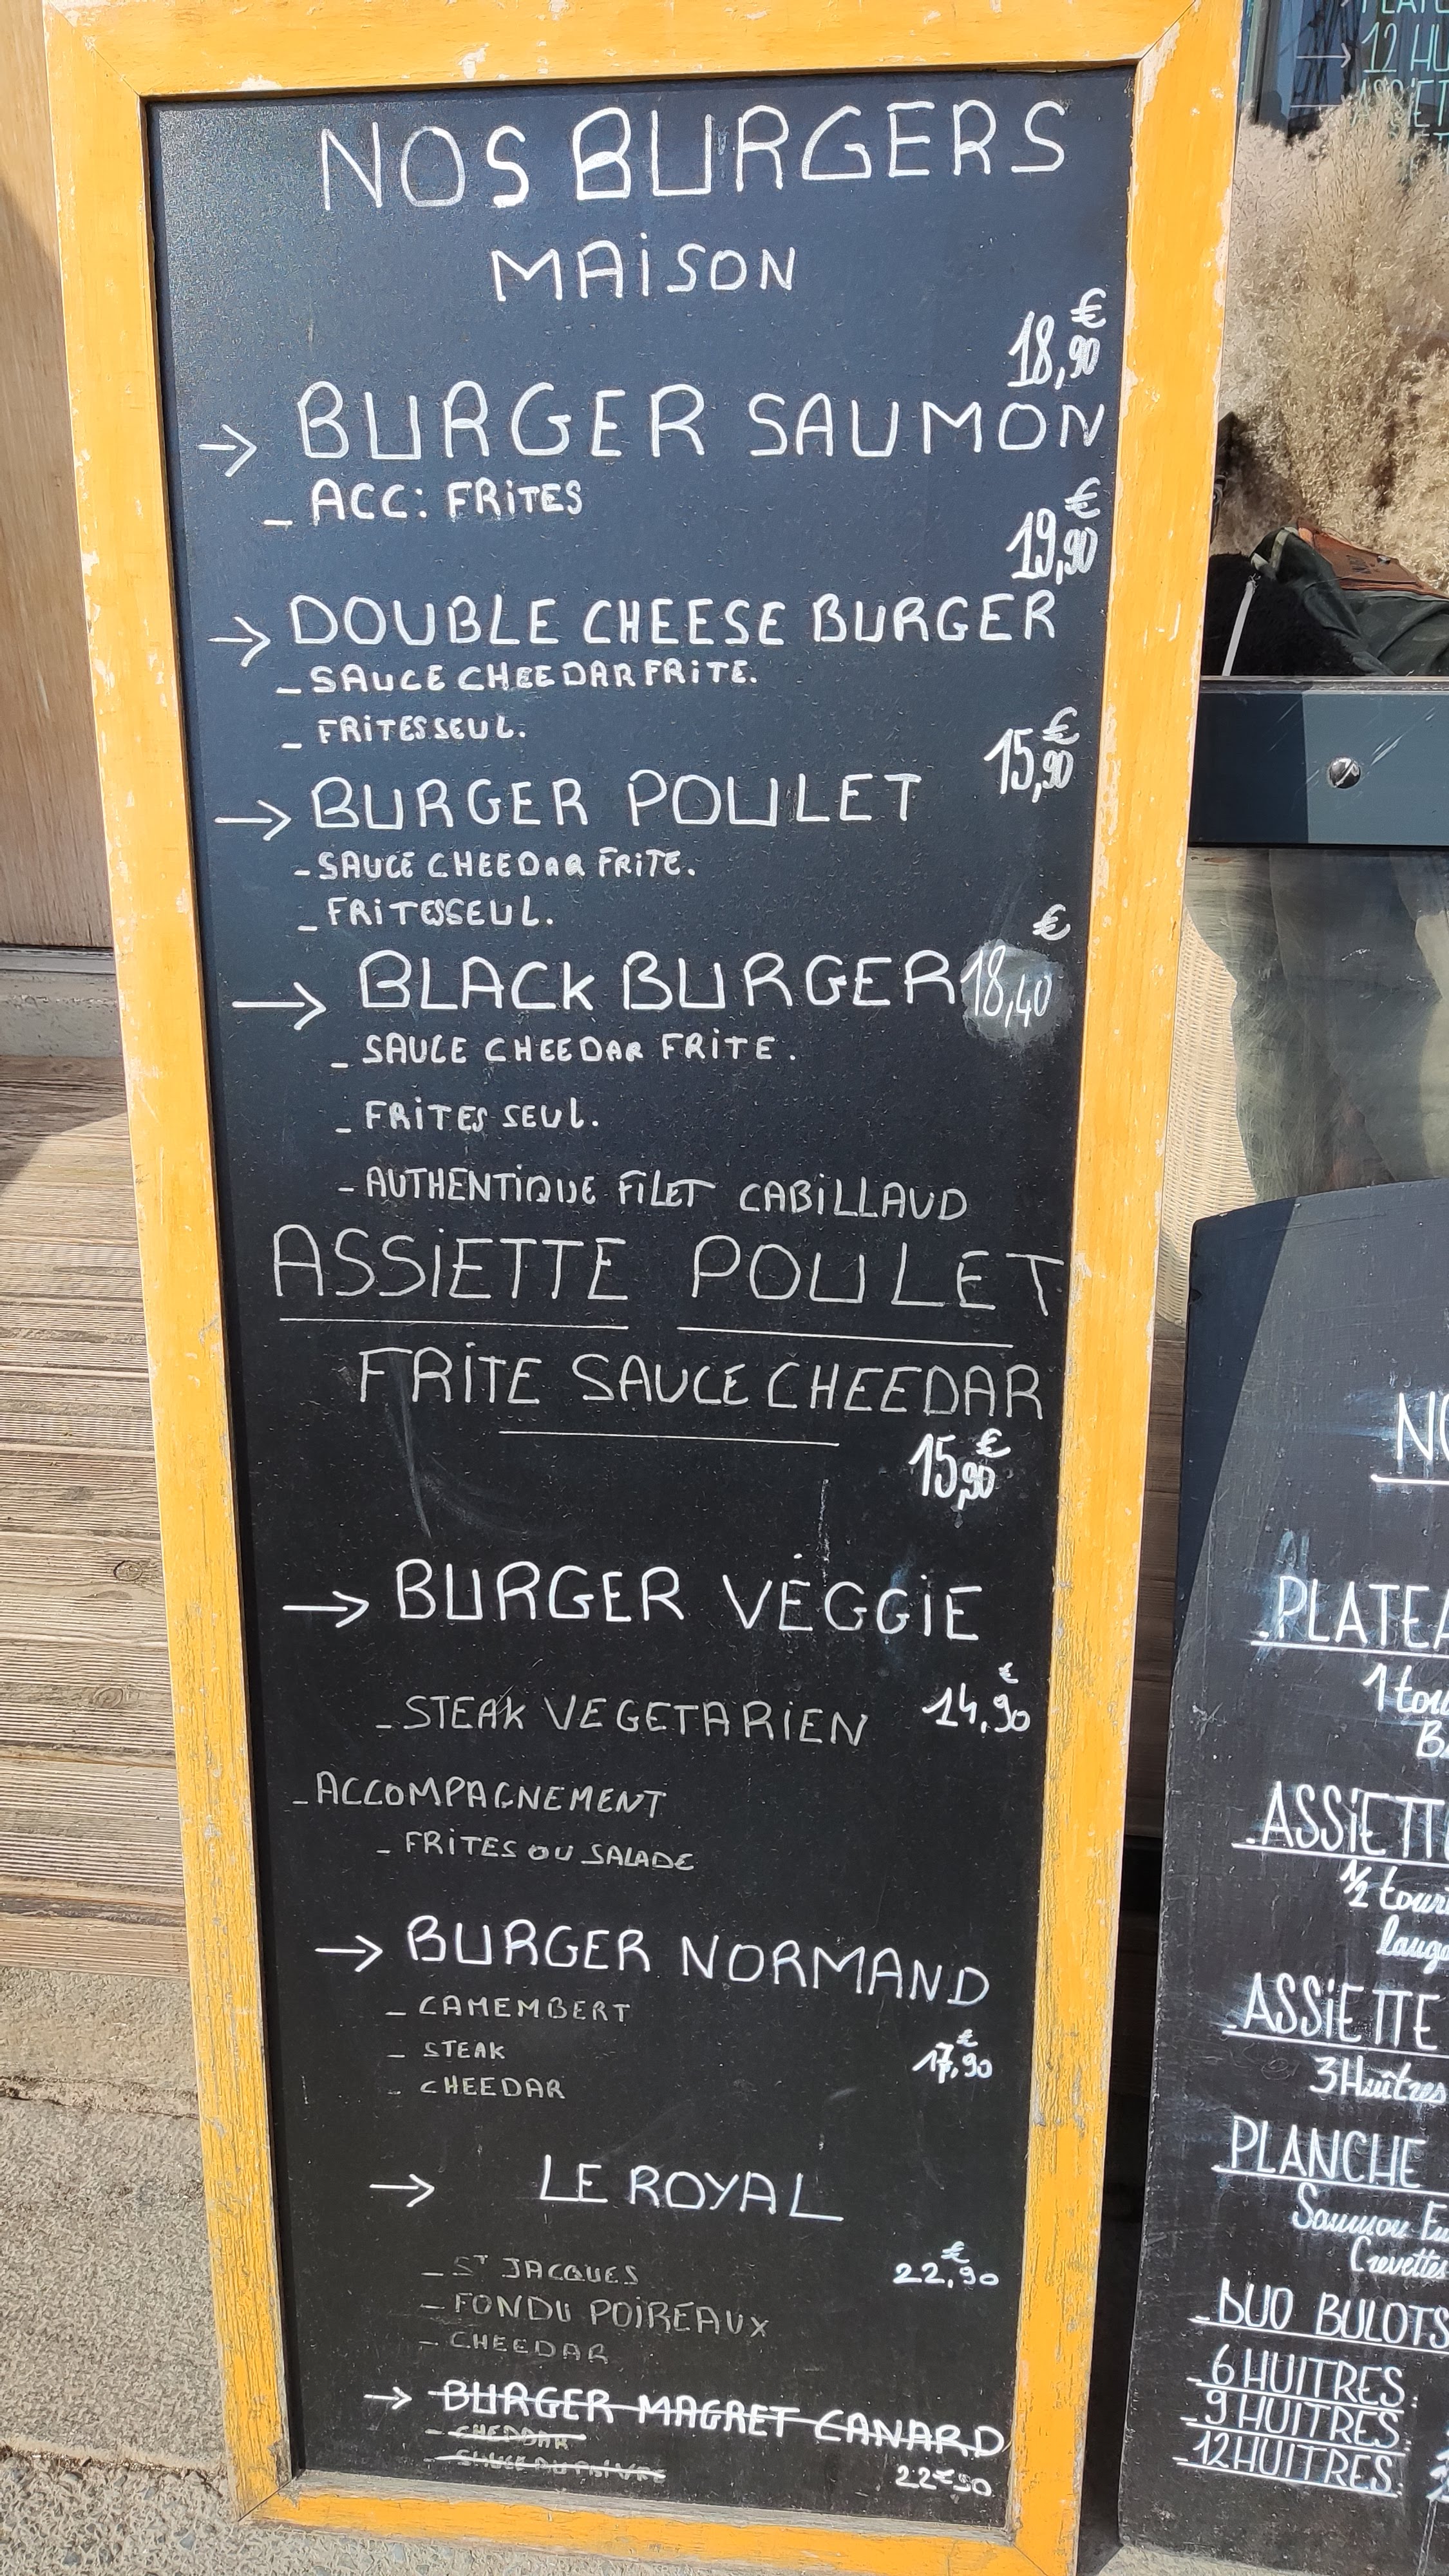 NOS BURGERS
MAiSON
18,90€
→ BURGER SAUMON
_ ACC: FRiTES
19,90€
→ DOUBLE CHEESE BURGER
_ SAUCE CHEEDAR FRiTE.
_ FRiTES SEUL.
15,90€
→ BURGER POULET
- SAUCE CHEEDAR FRiTE.
_ FRiTES SEUL.
→ BLACK BURGER 18,40€
_ SAUCE CHEEDAR FRITE.
_ FRiTES SEUL.
- AUTHENTiQUE FiLET CABiLLAUD
ASSiETTE POULET
FRiTE SAUCE CHEEDAR
15,90€
→ BURGER VÉGGiE
_ STEAK VEGETARiEN 14,90€
_ ACCOMPAGNEMENT
_ FRiTES OU SALADE
→ BURGER NORMAND
_ CAMEMBERT
_ STEAK 17,90€
_ CHEEDAR
→ LE ROYAL
_ ST JACQUES 22,90€
_ FONDU POiREAUX
_ CHEEDAR
→ BURGER MAGRET CANARD
_ CHEDDAR
_ SAUCE AU POIVRE
22€50
12 HU
PLATEA
1 tou
ASSiETT
1/2 tour
ASSiETTE
3 Huîtres
PLANCHE
Saumon
Crevettes
DUO BULOTS
6 HUITRES.
9 HUITRES.
12 HUITRES.